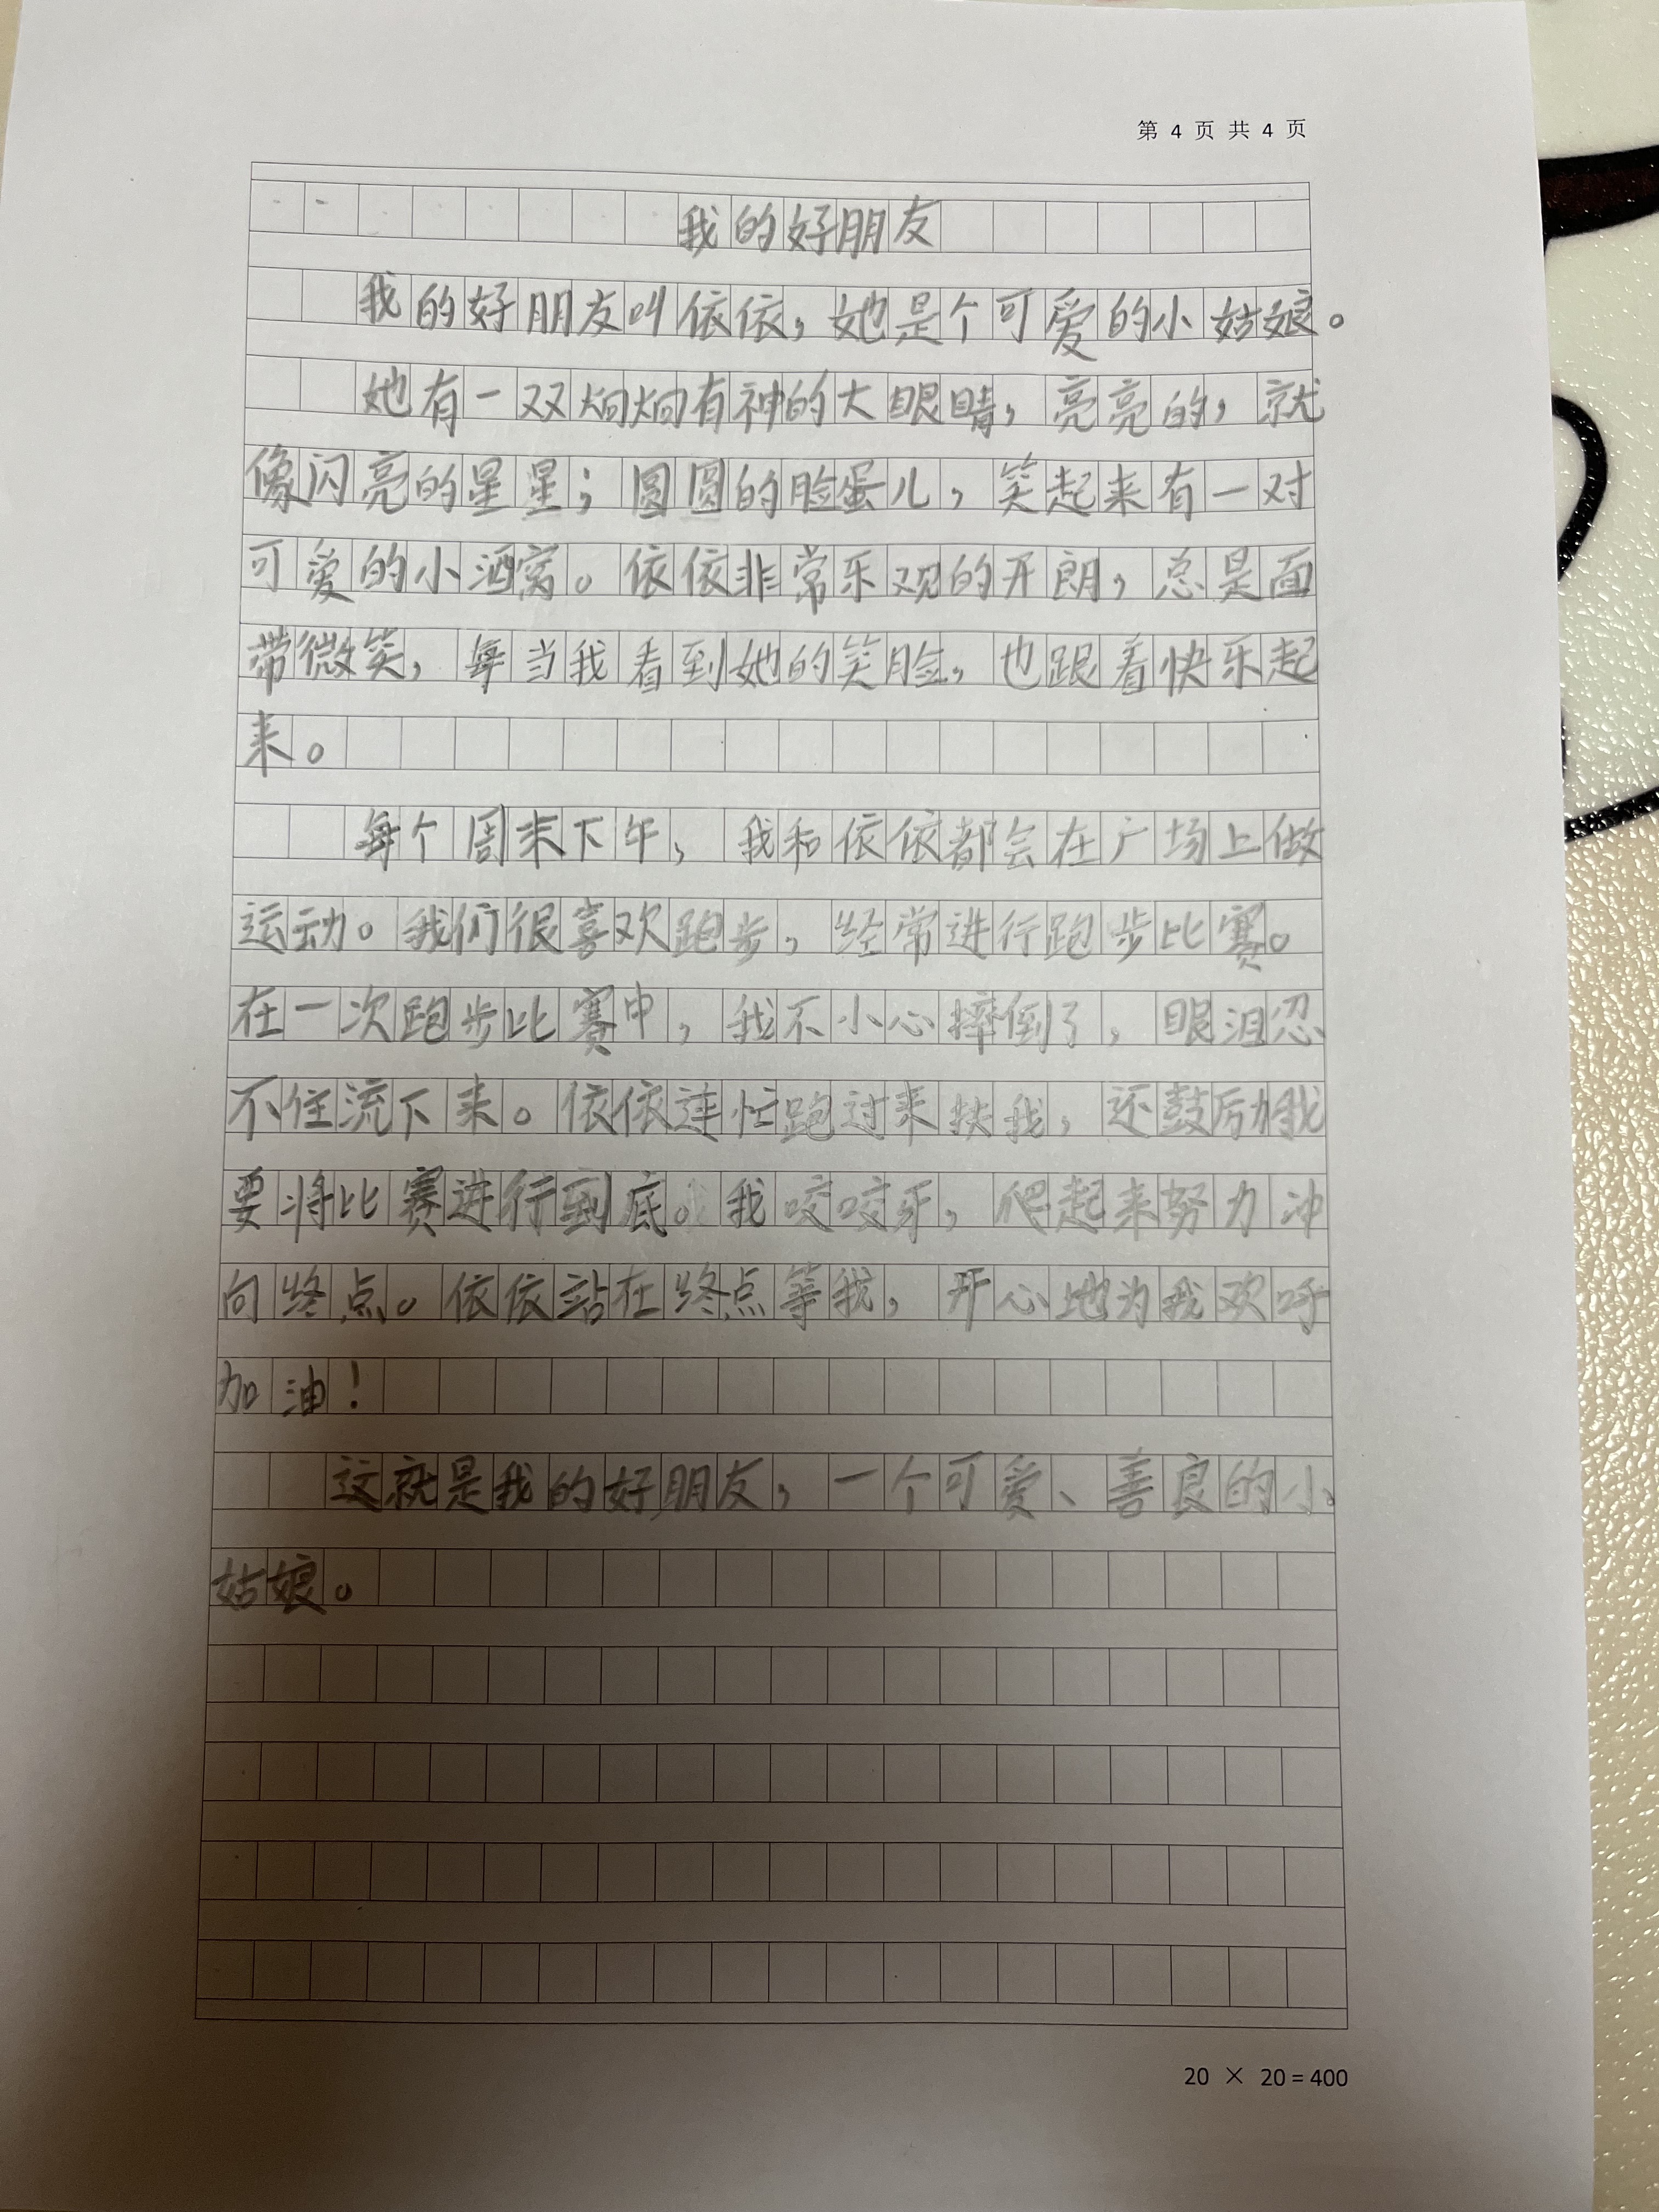 第 4 页 共 4 页
我的好朋友
我的好朋友叫依依，她是个可爱的小姑娘。
她有一双炯炯有神的大眼睛，亮亮的，就
像闪亮的星星；圆圆的脸蛋儿，笑起来有一对
可爱的小酒窝。依依非常乐观的开朗，总是面
带微笑，每当我看到她的笑脸，也跟着快乐起
来。
每个周末下午，我和依依都会在广场上做
运动。我们很喜欢跑步，经常进行跑步比赛。
在一次跑步比赛中，我不小心摔倒了，眼泪忍
不住流下来。依依连忙跑过来扶我，还鼓励我
要将比赛进行到底。我咬咬牙，爬起来努力冲
向终点。依依站在终点等我，开心地为我欢呼
加油！
这就是我的好朋友，一个可爱、善良的小
姑娘。
20 × 20 = 400